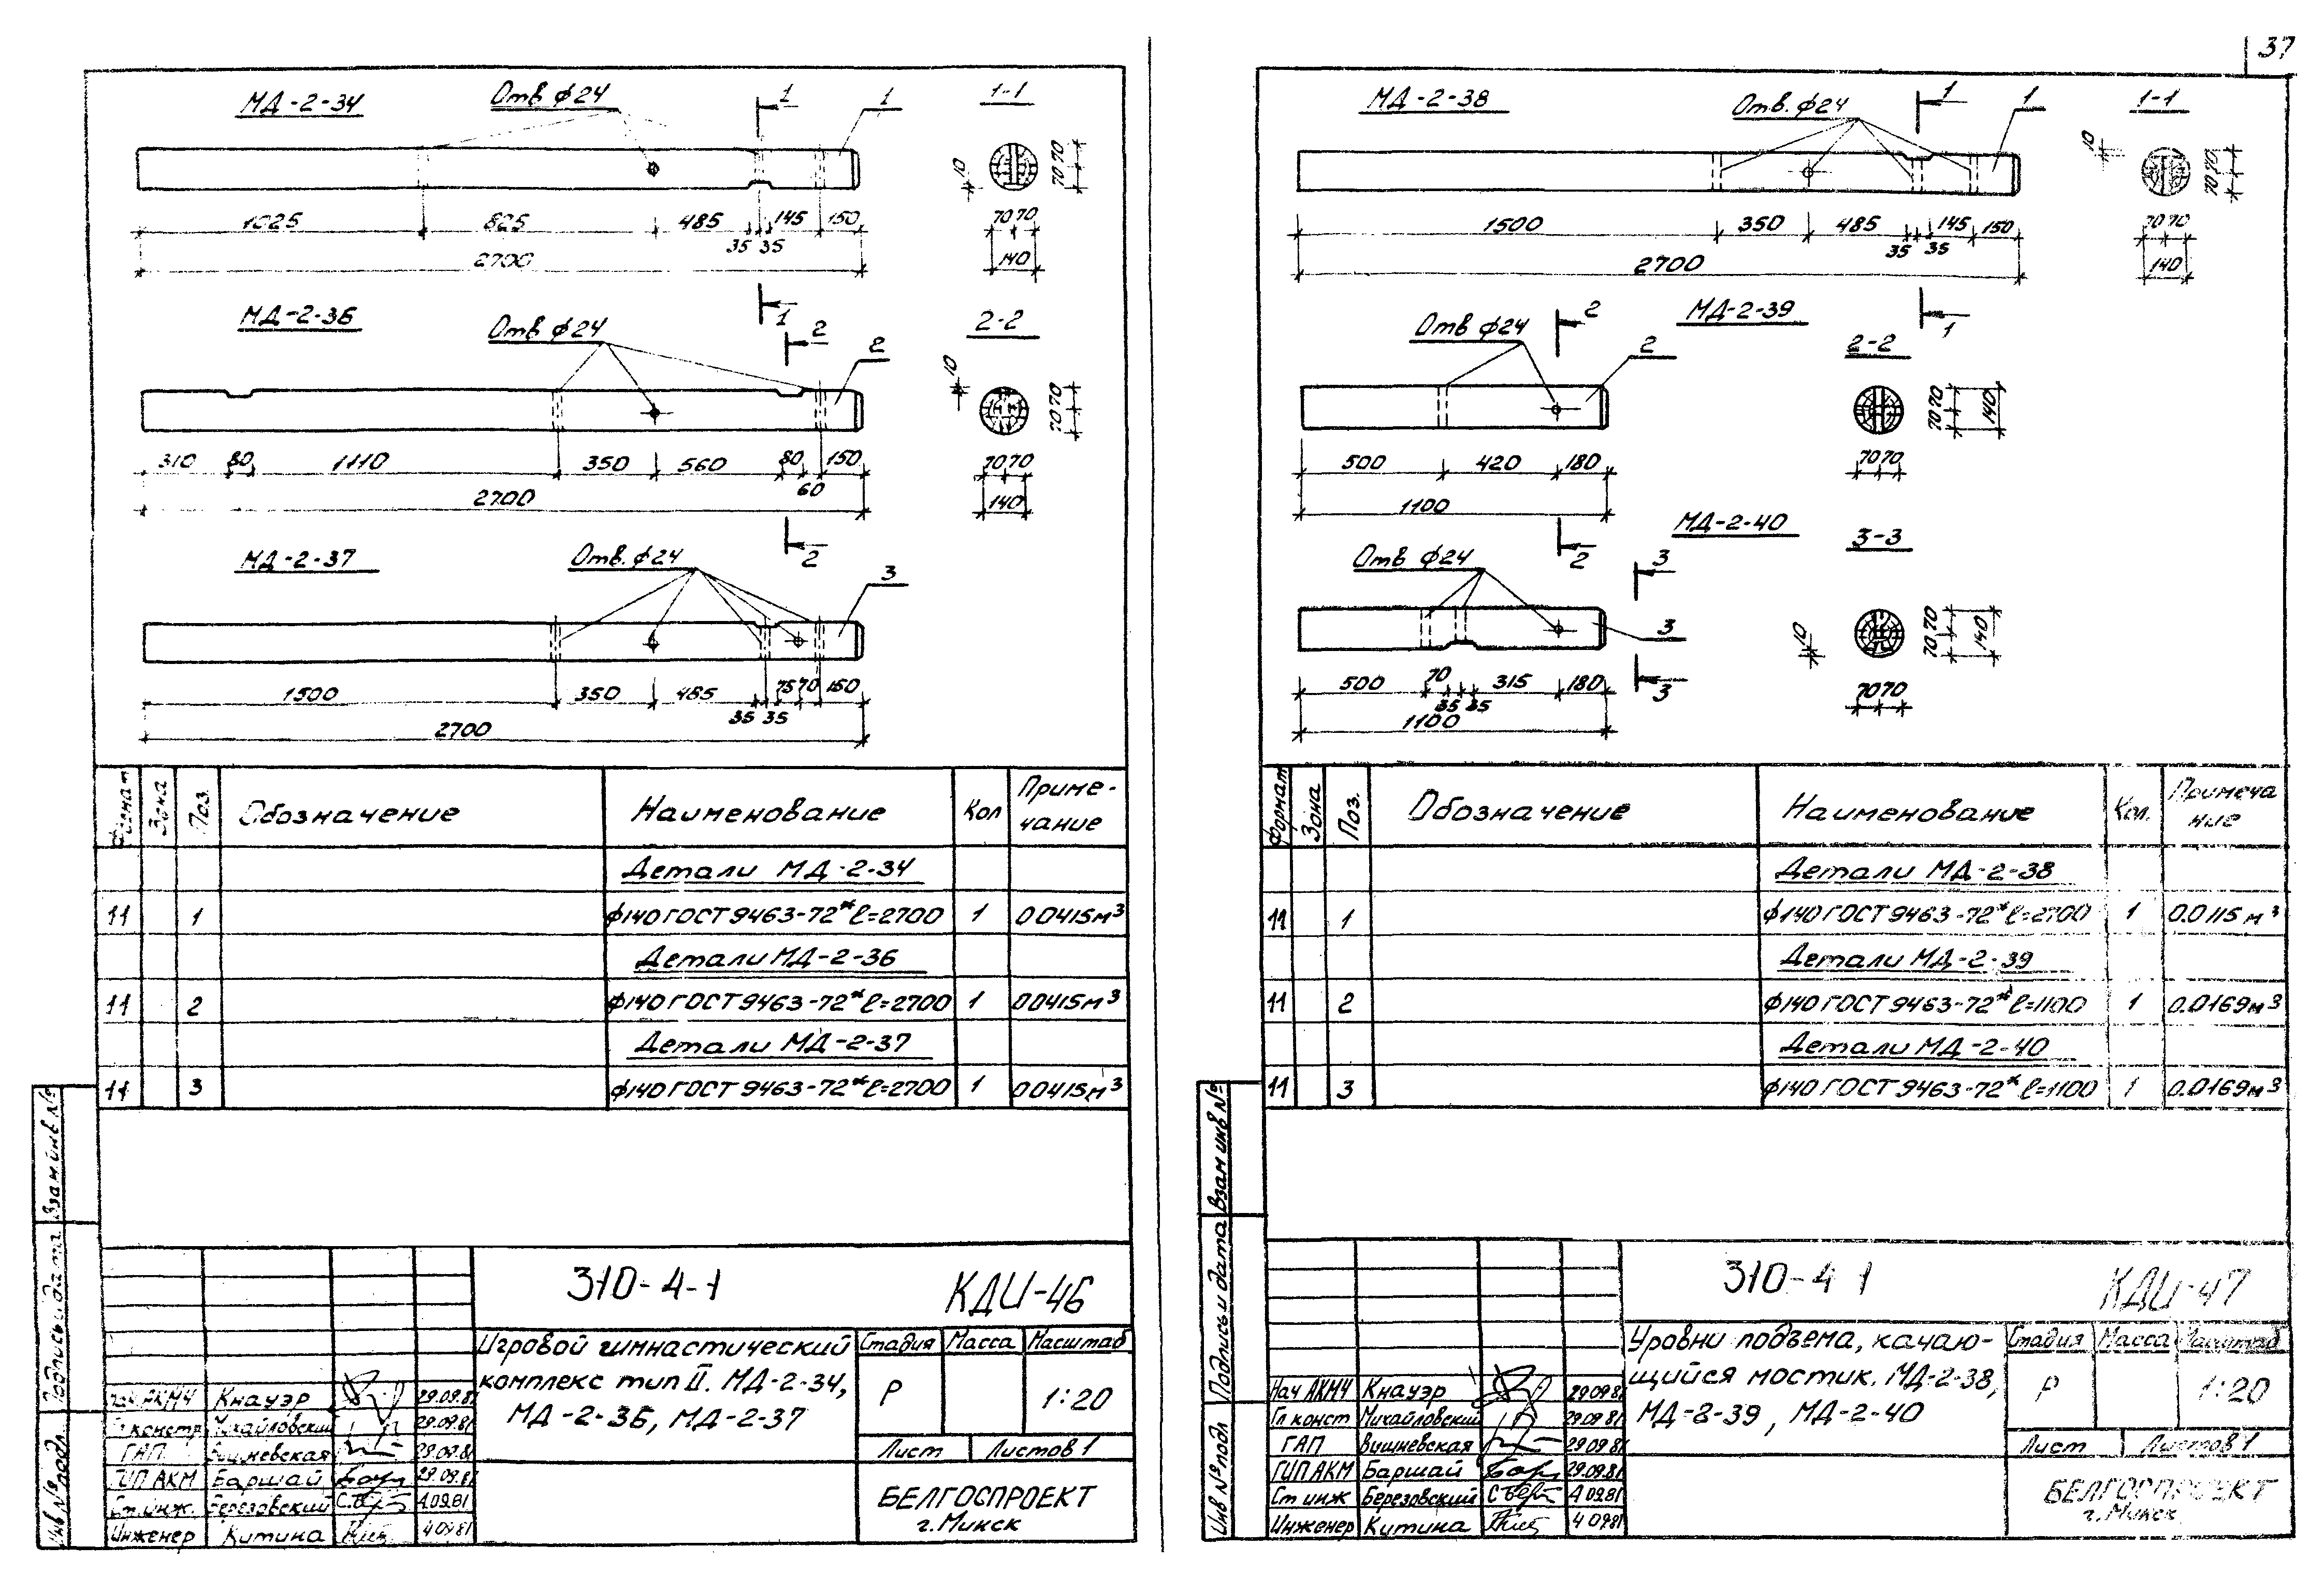 37
МД-2-34
Отв ф24
1
1
1-1
10
70 70
1025 825 485 145 150
35 35
70 70
2700
140
1
МД-2-36
Отв ф24
2
2
2-2
10
70 70
310 80 1110 350 560 80 150
60
70 70
2700
140
2
МД-2-37
Отв. ф24
3
1500 350 485 75 70 150
35 35
2700
Формат Зона Поз. Обозначение Наименование Кол Приме-
чание
Детали МД-2-34
11 1 ф140 ГОСТ 9463-72* ℓ=2700 1 0.0415м³
Детали МД-2-36
11 2 ф140 ГОСТ 9463-72* ℓ=2700 1 0.0415м³
Детали МД-2-37
11 3 ф140 ГОСТ 9463-72* ℓ=2700 1 0.0415м³
Взам инв №
Подпись и дата
Инв № подл
310-4-1 КДИ-46
Игровой гимнастический
комплекс тип II. МД-2-34,
МД-2-36, МД-2-37
Стадия Масса Масштаб
Р 1:20
Лист Листов 1
БЕЛГОСПРОЕКТ
г.Минск
Нач АКМЧ Кнауэр 29.09.81
Гл констр Михайловский 29.09.81
ГАП Вишневская 29.09.81
ГИП АКМ Баршай 29.09.81
Ст. инж. Березовский 4.09.81
Инженер Китина 4 09 81
МД-2-38
Отв. ф24
1
1
1-1
10
70 70
1500 350 485 145 150
35 35
70 70
2700
140
1
МД-2-39
Отв ф24
2
2
2-2
70 70
140
500 420 180
70 70
1100
2
МД-2-40
Отв ф24
3
3
3-3
10
70 70
140
500 70 315 180
35 35
70 70
1100
3
Формат Зона Поз. Обозначение Наименование Кол. Примеча
ние
Детали МД-2-38
11 1 ф140 ГОСТ 9463-72* ℓ=2700 1 0.0115 м³
Детали МД-2-39
11 2 ф140 ГОСТ 9463-72* ℓ=1100 1 0.0169м³
Детали МД-2-40
11 3 ф140 ГОСТ 9463-72* ℓ=1100 1 0.0169м³
Взам инв №
Подпись и дата
Инв № подл
310-4 1 КДИ-47
Уровни подъема, качаю-
щийся мостик. МД-2-38,
МД-2-39, МД-2-40
Стадия Масса Масштаб
Р 1:20
Лист Листов 1
БЕЛГОСПРОЕКТ
г.Минск
Нач АКМЧ Кнауэр 29 09.81
Гл конст Михайловский 29.09.81
ГАП Вишневская 29 09 81
ГИП АКМ Баршай 29.09.81
Ст инж Березовский 4 09.81
Инженер Китина 4 09.81